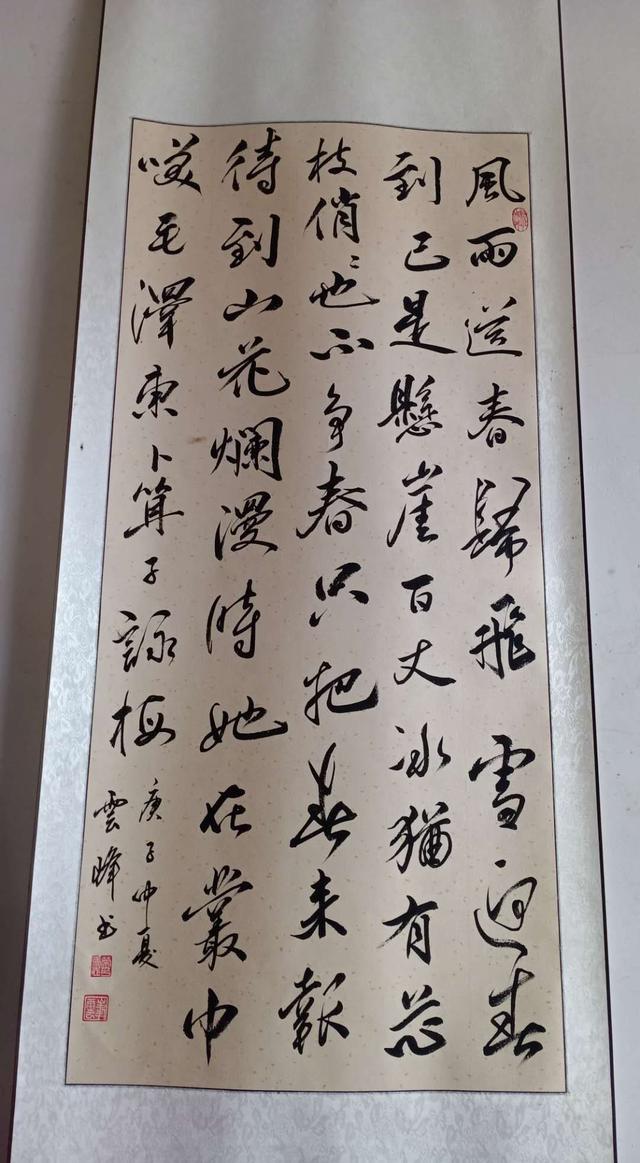 風雨送春歸飛雪迎春
到已是懸崖百丈冰猶有花
枝俏々也不争春只把春来報
待到山花爛漫時她在叢中
咲毛澤東卜算子詠梅
庚子仲夏
雲峰书